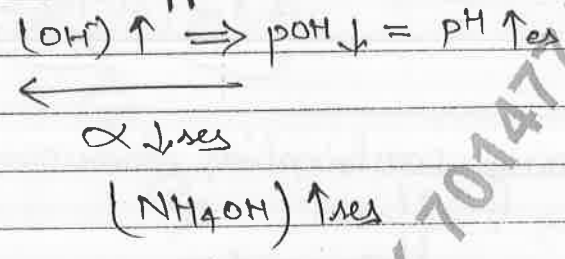 (OH⁻) ↑ ⇒ pOH ↓ = pH ↑es
←
α ↓ses
(NH4OH) ↑ses
701477